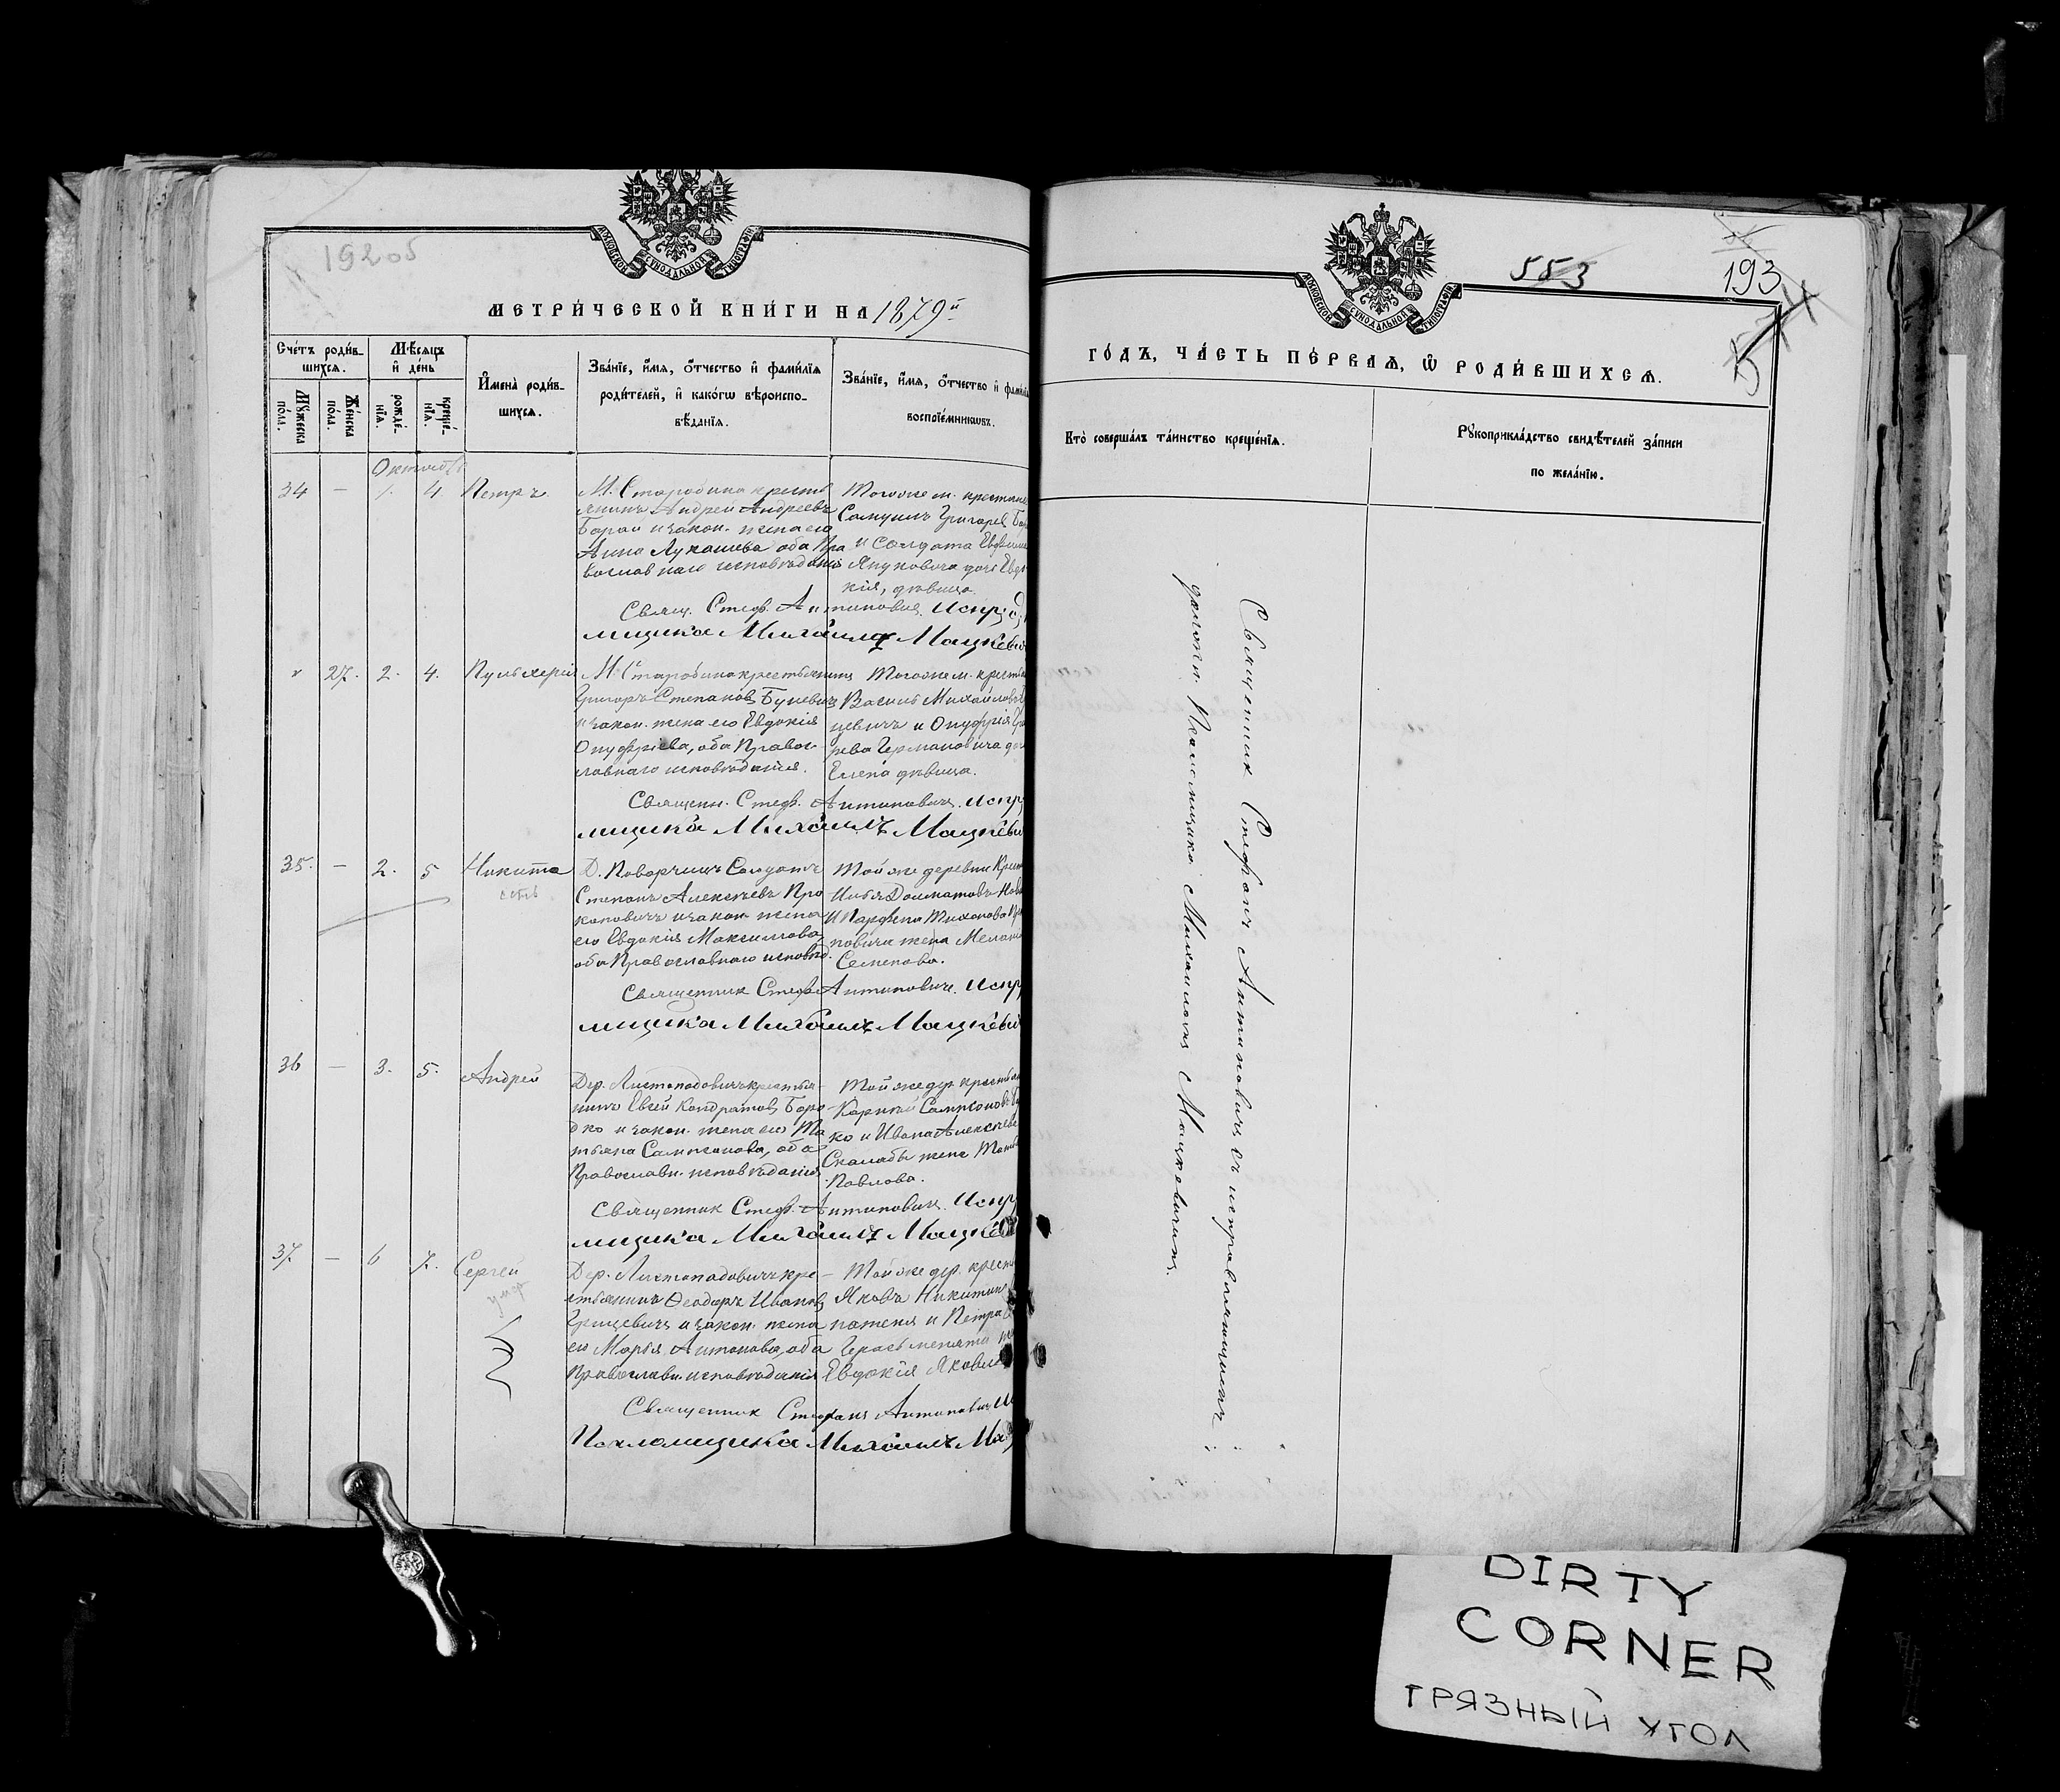 19205
МОСКОВСКОЙ СѴНОДАЛЬНОЙ ТИПОГРАФІИ
МЕТРИ́ЧЕСКОЙ КНИ́ГИ НА 1879й
Сче́тъ роди́в-
шихсѧ.
Мѣ́сѧцъ
и҆ де́нь
Мꙋ́жеска
по́ла.
Же́нска
по́ла.
рожде́-
нїѧ.
креще́-
нїѧ.
И҆мена̀ роди́в-
шихсѧ.
Зва́нїе, и҆́мѧ, ѻ҆́тчество и҆ фами́лїѧ
роди́телей, и҆ како́гѡ вѣроиспо-
вѣ́данїѧ.
Зва́нїе, и҆́мѧ, ѻ҆́тчество и҆ фами́лїѧ
воспрїе́мникѡвъ.
Октябрь
34 — 1. 4 Петръ.
М. Старобина кресть
янинъ Андрей Андреевъ
Барай и закон. жена его
Анна Лукашева оба Пра
вославнаго исповѣданія
Тогоже м. крестьян
Самуилъ Григорьев
и Солдата Евфима
Януковича дочь Евдо
кія, дѣвица.
Свящ. Стеф. Антиповичъ. Испр. д.
мщика Михаилъ Мацкеви
27. 2. 4. Пульхерія
М. Старобина крестьянинъ
Григоръ Степановъ Буневичъ
и закон. жена его Евдокія
Онуфріева, оба Правос-
лавнаго исповѣданія.
Тогоже м. крестья
Василь Михайловъ
цевичъ и Онуфрія Гри
рьева Германовича до
Елена дѣвица.
Священ. Стеф. Антиповичъ. Испр
мщика Михаилъ Мацкеви
35. — 2. 5 Никита
Д. Поварчицъ Солдатъ
Степанъ Алексѣевъ Про
коповичъ и закон. жена
его Евдокія Максимова,
оба Православнаго исповѣд.
Той же деревни Крест
Илья Далматовъ Нов
и Парфена Тихонова Про
повича жена Мелан
Семенова.
Священник Стеф. Антиповичъ. Испр
мщика Михаилъ Мацкеви
36 — 3. 5. Андрей
Дер. Листопадовичъ крестья-
нинъ Евсей Кондратовъ Боро-
дко и закон. жена его Та
тьяна Сампсонова, оба
Православн. исповѣданія
Той же дер. крестьян
Карпъ Сампсоновъ
ко и Ивана Алексѣева
Скалабы жена Татья
Павлова.
Священник Стеф. Антиповичъ. Испр
мщика Михаилъ Мацкеви
37. — 6 7. Сергей
умер
Дер. Листопадовичъ кре-
стьянинъ Ѳеодоръ Ивановъ
Грицевичъ и закон. жена
его Марья Антонова, оба
Православн. исповѣданія
Той же дер. крест
Яковъ Никитинъ
и Петра
Евдокія Яковле
Священник Стефанъ Антиповичъ И
Псаломщика Михаилъ Мац
МОСКОВСКОЙ СѴНОДАЛЬНОЙ ТИПОГРАФІИ
553
193
ГО́ДЪ, ЧА́СТЬ ПЕ́РВАѦ, Ѡ҆ РОДИ́ВШИХСѦ.
Кто̀ соверша́лъ та́инство креще́нїѧ.
Рꙋкоприкла́дство свидѣ́телей за́писи
по жела́нїю.
Священник Стефанъ Антиповичъ съ исправляющимъ
должн. Псаломщика Михаиломъ Мацкевичемъ.
DIRTY
CORNER
ГРЯЗНЫЙ УГОЛ